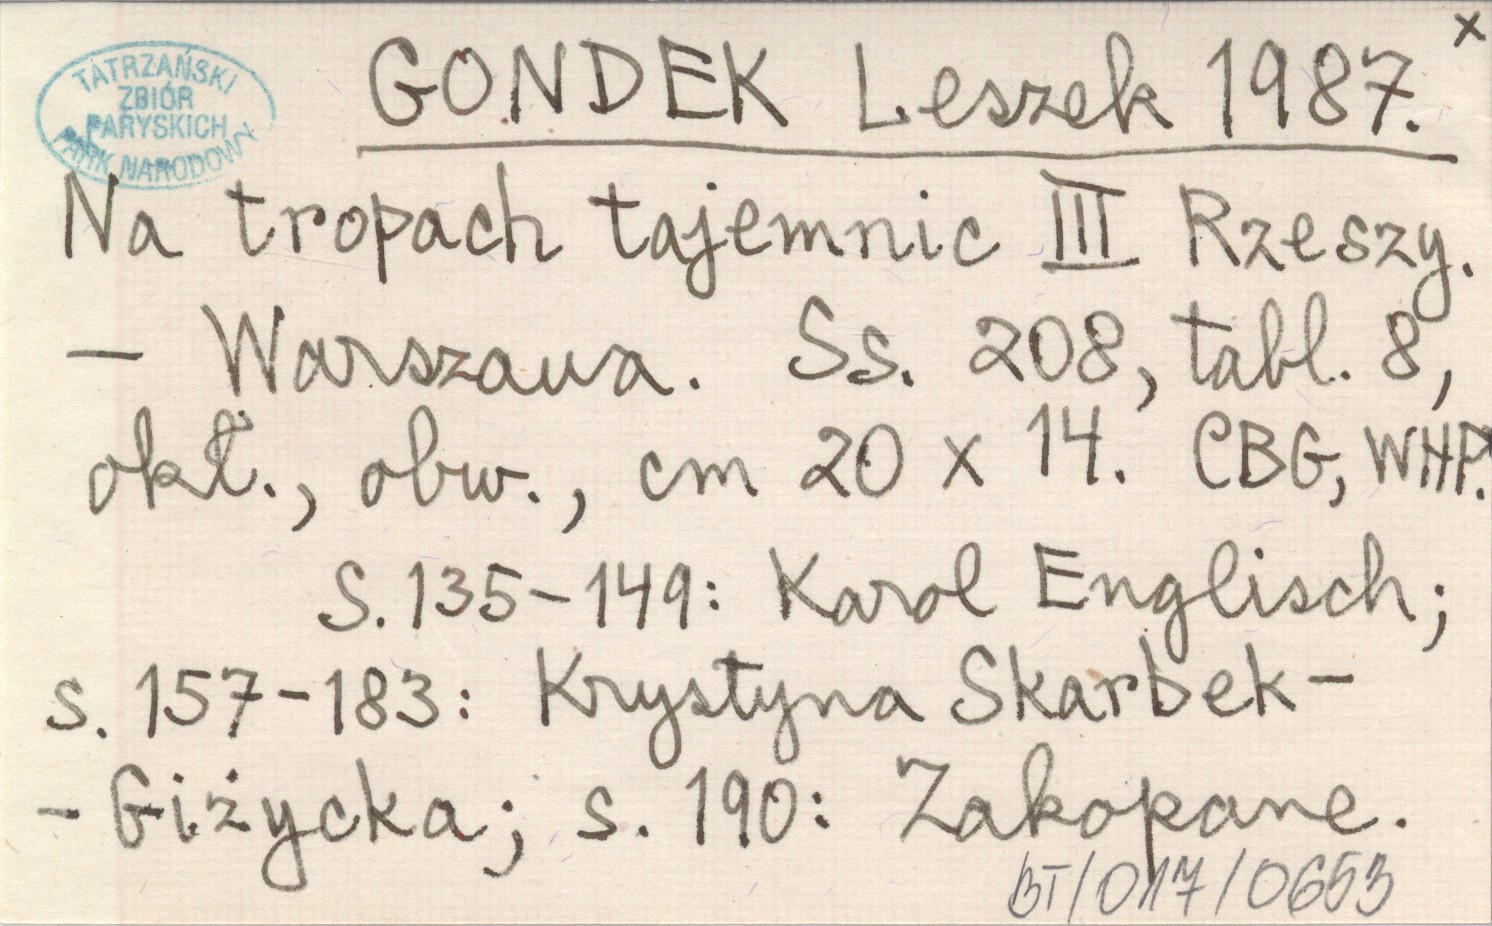 x
TATRZAŃSKI
ZBIÓR
PARYSKICH
PARK NARODOWY
GONDEK Leszek 1987.
Na tropach tajemnic III Rzeszy.
– Warszawa. Ss. 208, tabl. 8,
okł., obw., cm 20 x 14. CBG, WHP.
S. 135–149: Karol Englisch;
s. 157–183: Krystyna Skarbek–
– Giżycka; s. 190: Zakopane.
BT/017/0653